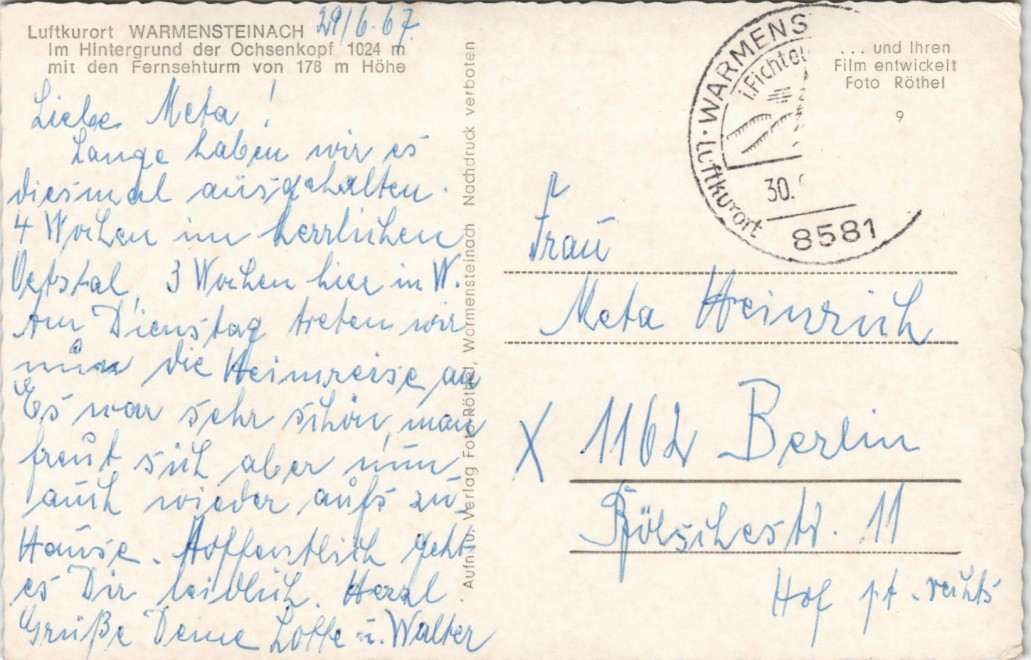 Luftkurort WARMENSTEINACH 29/6.67
Im Hintergrund der Ochsenkopf 1024 m
mit den Fernsehturm von 178 m Höhe
Liebe Meta!
Lange haben wir es
diesmal ausgehalten.
4 Wochen im herrlichen
Oetstal, 3 Wochen hier in W.
Am Dienstag treten wir
nun die Heimreise an
Es war sehr schön, man
freut sich aber nun
auch wieder aufs zu-
Hause. Hoffenstlich geht
es Dir leidlich. Herzl.
Grüße Deine Lotte u. Walter
Aufn. u. Verlag Foto-Röthel, Warmensteinach Nachdruck verboten
Luftkurort · WARMENS
i. Fichtel
30.
8581
... und Ihren
Film entwickelt
Foto Röthel
9
Frau
Meta Heinrich
X 1162 Berlin
Bölschestr. 11
Hof pt. rechts